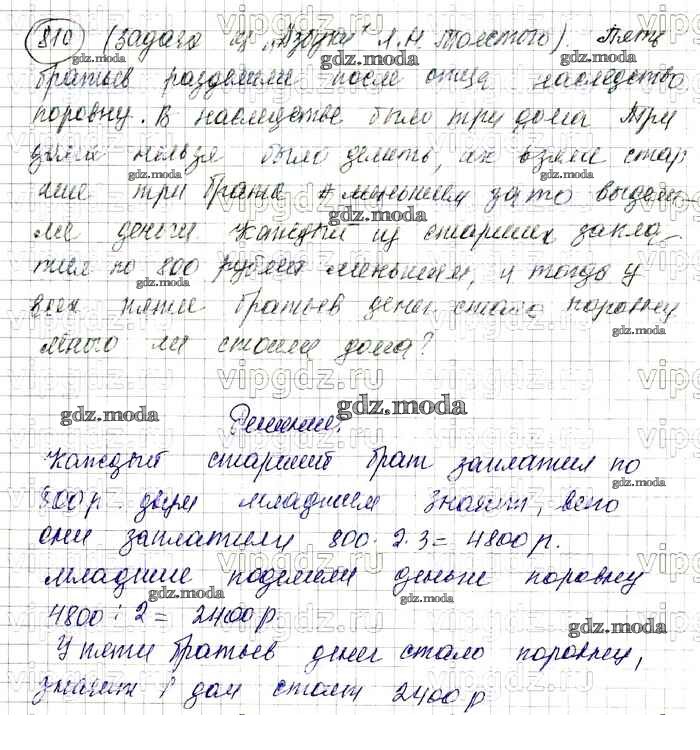 810 (Задача из „Азбуки“ Л.Н. Толстого). Пять
братьев разделили после отца наследство
поровну. В наследстве было три дома. Три
дома нельзя было делить, их взяли стар
шие три брата, а меньшим за то выдели
ли деньги. Каждый из старших запла
тил по 800 рублей меньшим, и тогда у
всех пяти братьев денег стало поровну
много ли стоили дома?
Решение.
Каждый старший брат заплатил по
800 р двум младшим значит, всего
они заплатили 800 · 2 · 3 = 4800 р.
младшие поделили деньги поровну
4800 : 2 = 2400 р
У пяти братьев денег стало поровну,
значит 1 дом стоит 2400 р